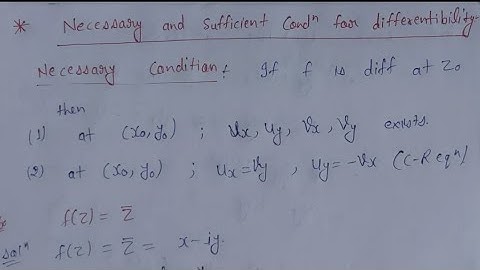 * Necessary and Sufficient Condⁿ for differentibility.
Necessary Condition: If f is diff at z₀
then
(1) at (x₀, y₀) ; Ux, Uy, Vx, Vy exists.
(2) at (x₀, y₀) ; Ux=Vy , Uy=-Vx (C-R eqⁿ)
f(z) = z̅
Solⁿ f(z) = z̅ = x-iy.